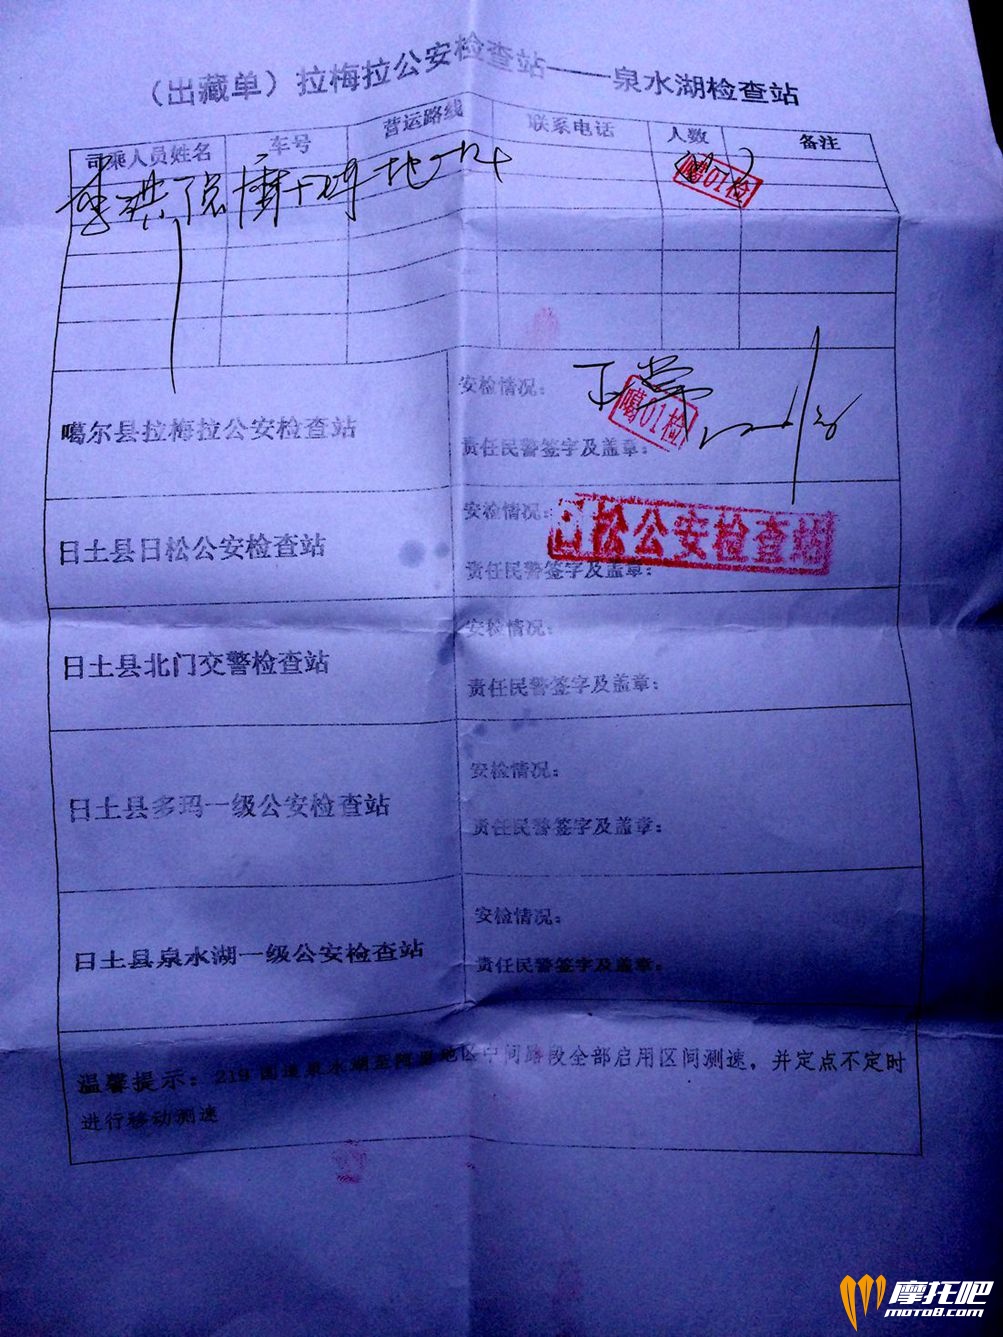 （出藏单）拉梅拉公安检查站——泉水湖检查站
司乘人员姓名 车号 营运路线 联系电话 人数 备注
噶01检
噶尔县拉梅拉公安检查站
安检情况：
噶01检
责任民警签字及盖章：
日土县日松公安检查站
安检情况：
日松公安检查站
责任民警签字及盖章：
日土县北门交警检查站
安检情况：
责任民警签字及盖章：
日土县多玛一级公安检查站
安检情况：
责任民警签字及盖章：
日土县泉水湖一级公安检查站
安检情况：
责任民警签字及盖章：
温馨提示：219国道泉水湖至阿里地区中间路段全部启用区间测速，并定点不定时
进行移动测速
摩托吧
MOTO8.COM